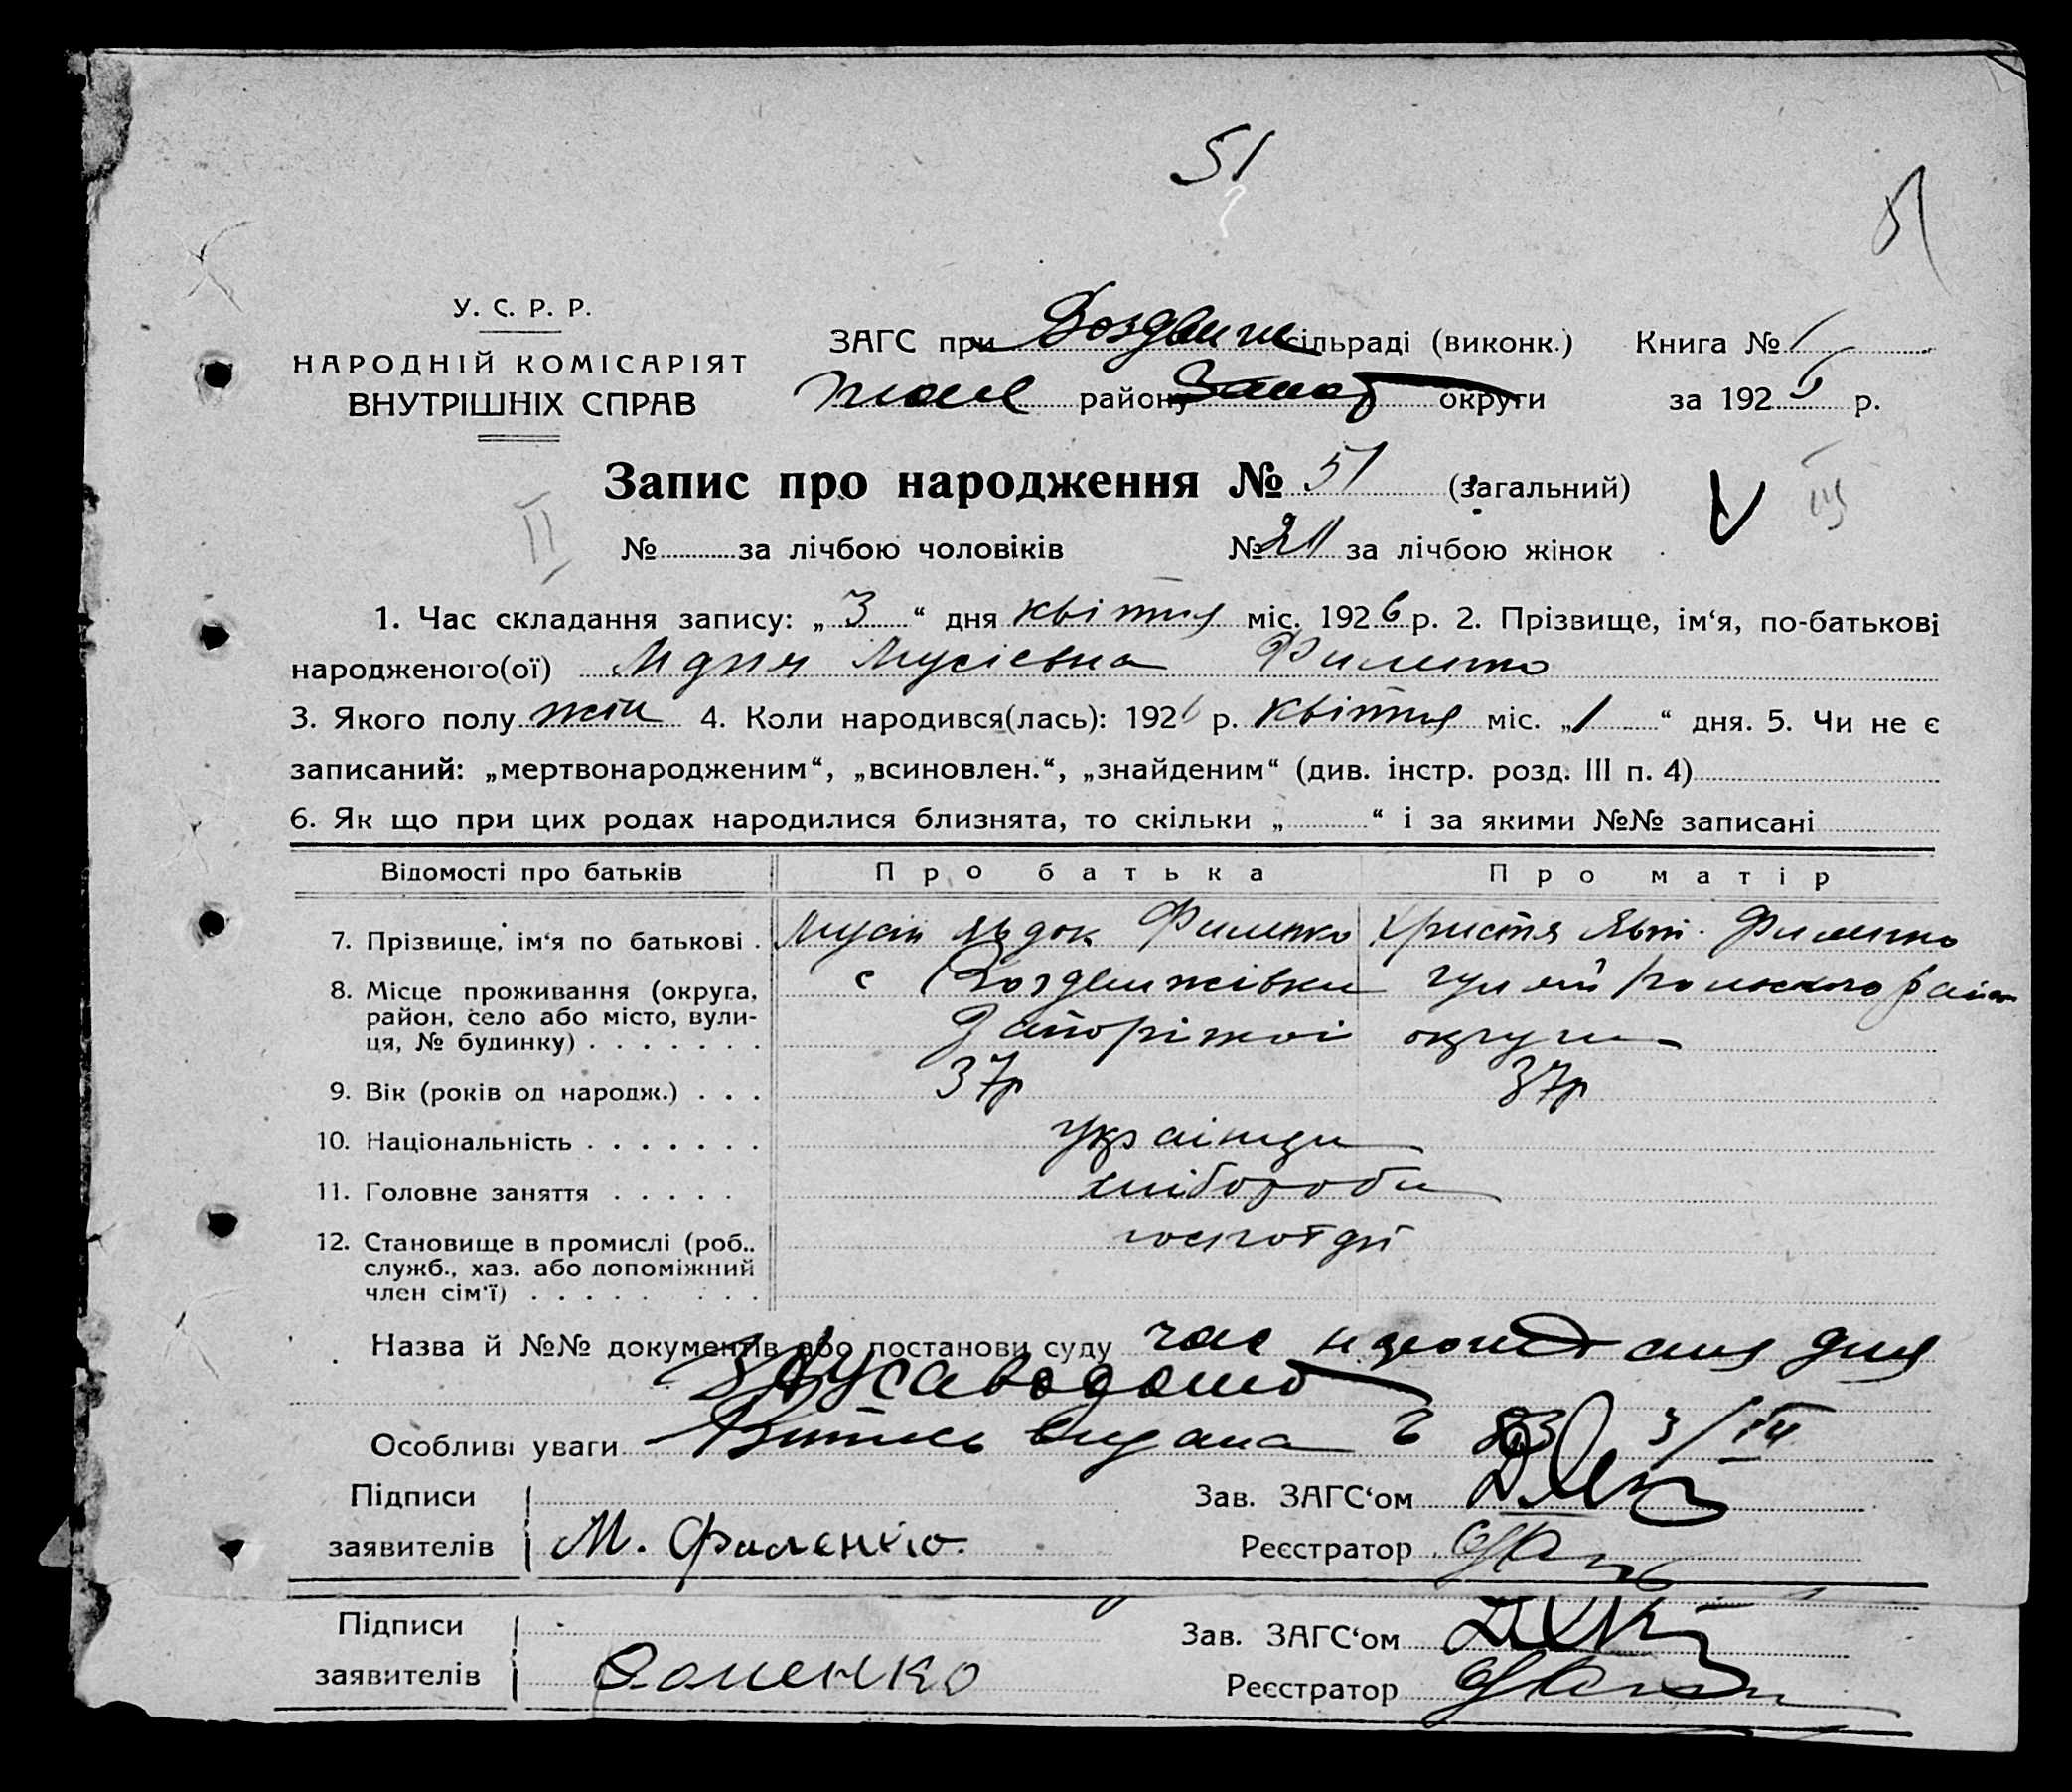 51
51
У. С. Р. Р.
НАРОДНІЙ КОМІСАРІЯТ
ВНУТРІШНІХ СПРАВ
ЗАГС при Воздвиж сільраді (виконк.) Книга №
району Запоріз округи за 192 6 р.
Запис про народження № 51 (загальний)
II
III
№ за лічбою чоловіків № 21 за лічбою жінок
1. Час складання запису: „ 3 “ дня квітня міс. 1926 р. 2. Прізвище, ім‘я, по-батькові
народженого(ої) Мусієвна Филенко
3. Якого полу жін 4. Коли народився(лась): 1926 р. квітня міс. „ 1 “ дня. 5. Чи не є
записаний: „мертвонародженим“, „всиновлен.“, „знайденим“ (див. інстр. розд. III п. 4)
6. Як що при цих родах народилися близнята, то скільки „ “ і за якими №№ записані
Відомості про батьків Про батька Про матір
7. Прізвище, ім‘я по батькові . Мусій Филенко Христя Филенко
8. Місце проживання (округа, с Воздвижівки Гуляй Польского район
район, село або місто, вули-
ця, № будинку) . . . . . . . Запоріжої округи
9. Вік (років од народж.) . . . 37р 37р
10. Національність . . . . . . . українци
11. Головне заняття . . . . . хлібороби
12. Становище в промислі (роб.. господ
служб., хаз. або допоміжний
член сім‘ї) . . . . . . . .
Назва й №№ документів або постанови суду час
Особливі уваги Витись видана 3/IV
Підписи Зав. ЗАГС‘ом
заявителів М. Филенко. Реєстратор
Підписи Зав. ЗАГС‘ом
заявителів Реєстратор